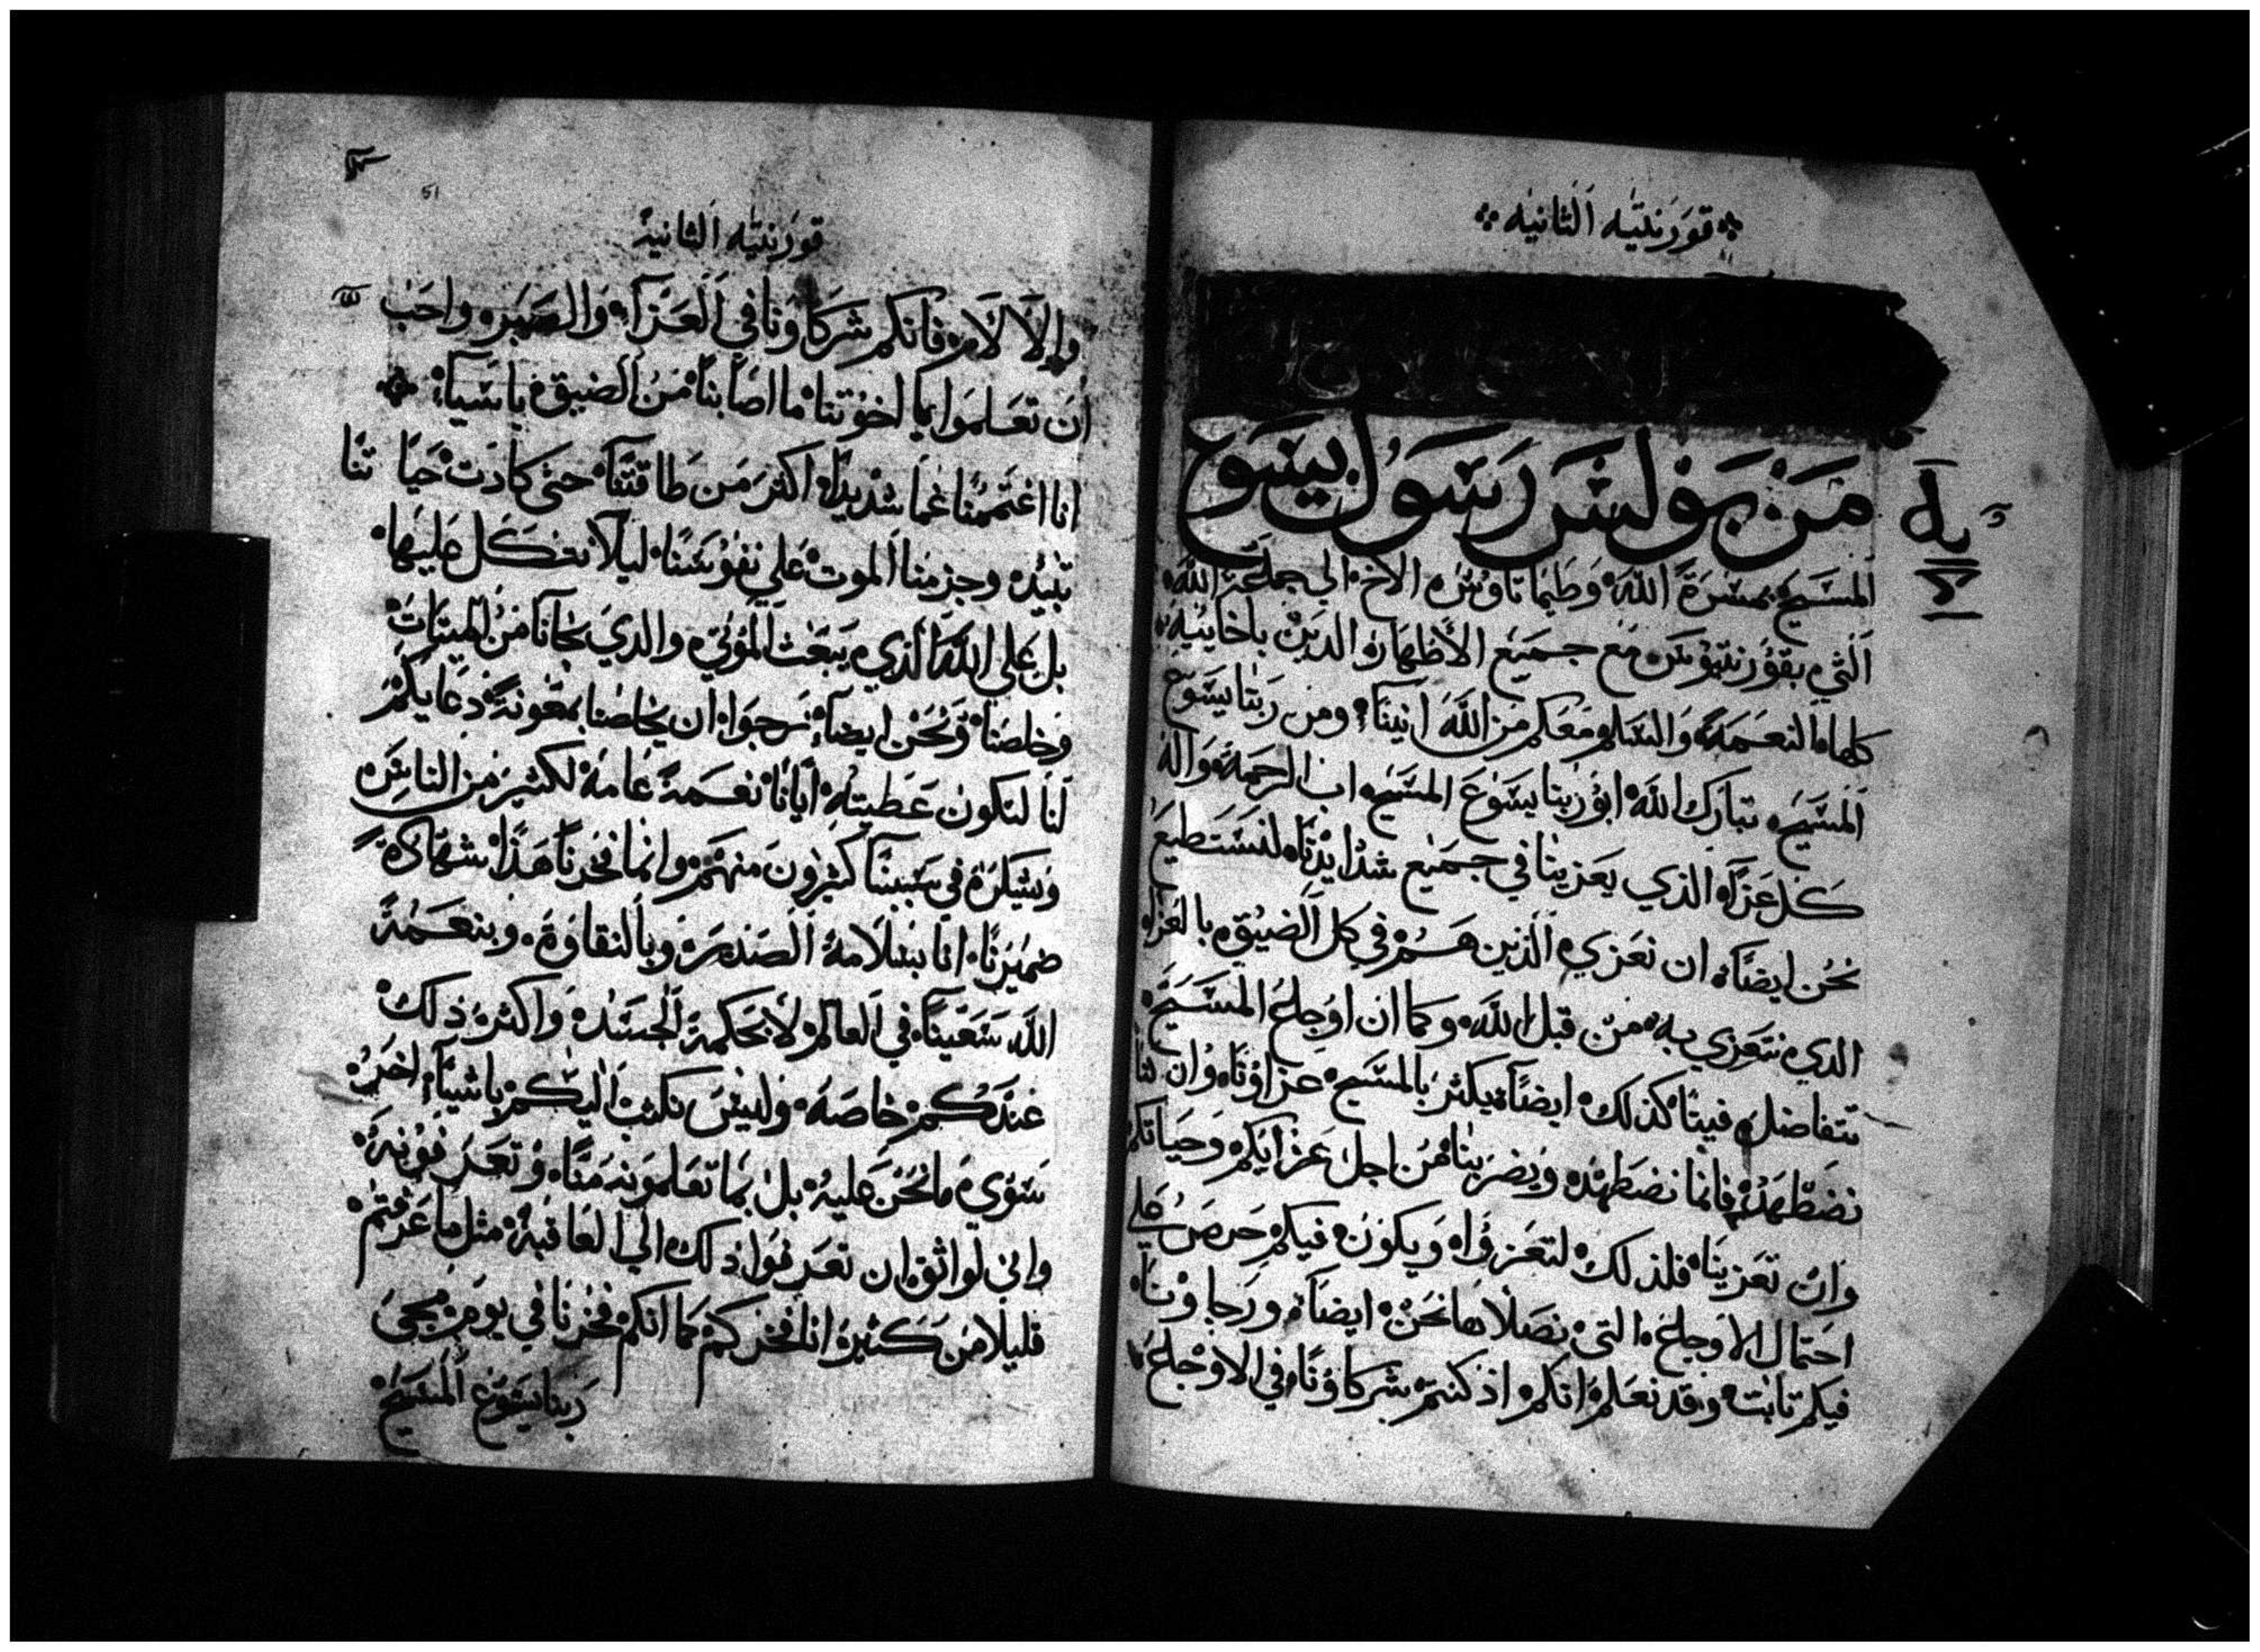 قورنتيه الثانيه
من بولس رسول يسوع
المسيح بمسرة الله وطيماتاوس الاخ الي جماعة الله
التي بقورنتيوس مع جميع الاطهار الدين باخاييه
كلها النعمة والسلم معكم من الله ابينا ومن ربنا يسوع
المسيح تبارك الله ابو ربنا يسوع المسيح اب الرحمة واله
كل عزا الذي يعزينا في جميع شدايدنا لنستطيع
نحن ايضا ان نعزي الذين هم في كل الضيق بالعزا
الدي نتعزي به من قبل الله وكما ان اوجاع المسيح
تتفاضل فينا كذلك ايضا يكثر بالمسيح عزاونا وان كنا
نضطهد فانما نضطهد ويضر بنا من اجل عزايكم وحياتكم
وان تعزينا فلذلك لتعزوا ويكون فيكم حرص علي
احتمال الاوجاع التي نصلاها نحن ايضا ورجاونا
فيكم ثابت وقد نعلم انكم اذ كنتم شركاونا في الاوجاع
51
قورنتيه الثانية
والالام فانكم شركاونا في العزآ والصبر واحب
ان تعلموا يا اخوتنا ما اصابنا من الضيق باسيا
انا اغتممنا غما شديدا اكثر من طاقتنا حتى كادت حياتنا
تبيد وجزمنا الموت علي نفوسنا ليلا نتكل عليها
بل علي الله الذي يبعث الموتي والدي نجانا من الميتات
وخلصنا ونحن ايضا نرجوا ان يخلصنا بمعونة دعايكم
لنا لتكون عطيته ايانا نعمة عامة لكثير من الناس
ويشكره في سببنا كثيرون منهم وانما فخرنا هذا شهادة
ضميرنا انا بسلامة الصدر وبالنقاوة وبنعمة
الله سعينا في العالم لا بحكمة الجسد واكثر ذلك
عندكم خاصة وليس نكتب اليكم باشيآ اخر
سوي ما نحن عليه بل بما تعلمونه منا وتعرفونه
واني لواثق ان تعرفوا ذلك الي العاقبة مثل ما عرفتم
قليلا من كثير انا فخركم كما انكم فخرنا في يوم مجى
ربنا يسوع المسيح